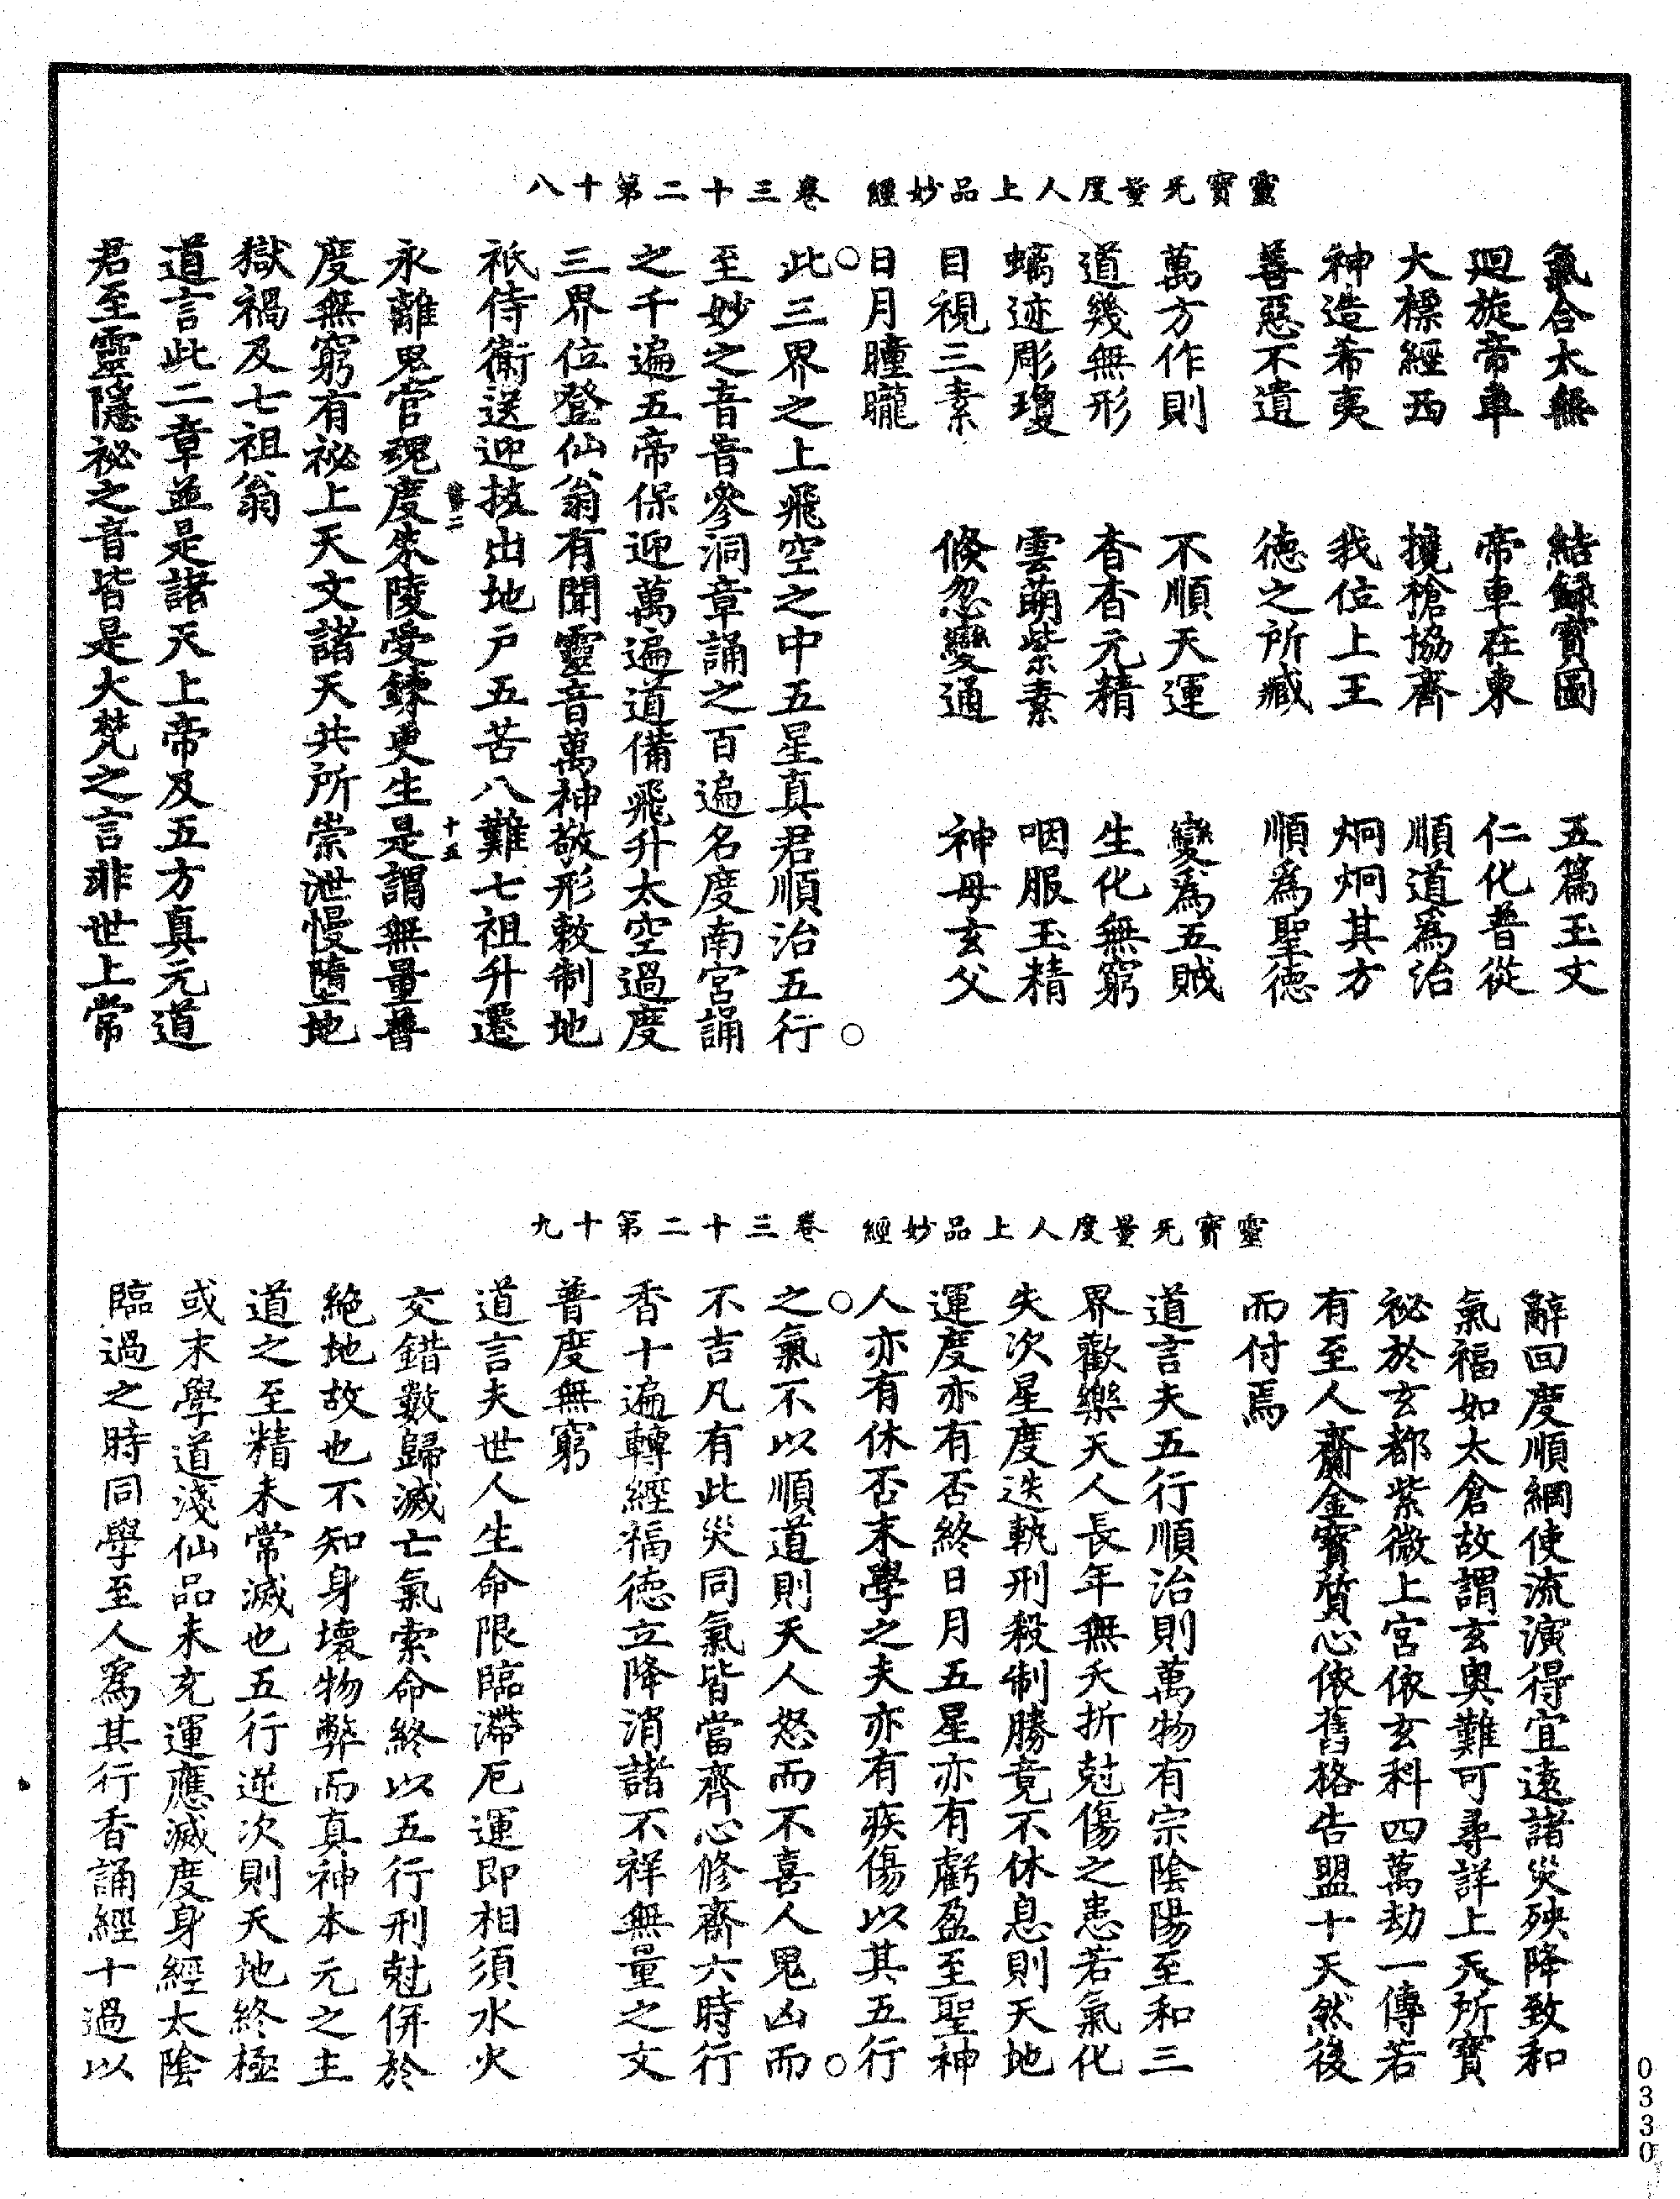 靈寶无量度人上品妙經　卷三十二第十八
氣合太無　結録寶圖　五篇玉文
廻旋帝車　帝車在東　仁化普從
大標經西　攙槍協齊　順道爲治
神造希夷　我位上王　炯炯其方
善惡不遺　德之所臧　順爲聖德
萬方作則　不順天運　變爲五賊
道幾無形　杳杳元精　生化無窮
蟎迹彫瓊　雲萌紫素　咽服玉精
目視三素　倏忽變通　神母玄父
日月瞳曨
此三界之上飛空之中五星真君順治五行
至妙之音昔參洞章誦之百遍名度南宮誦
之千遍五帝保迎萬遍道備飛升太空過度
三界位登仙翁有聞靈音萬神敬形敕制地
祇侍衛送迎拔出地户五苦八難七祖升遷
永離鬼官魂度朱陵受鍊更生是謂無量普
度無窮有祕上天文諸天共所崇泄慢墮地
獄禍及七祖翁
道言此二章並是諸天上帝及五方真元道
君至靈隱祕之音皆是大梵之言非世上常
靈寶无量度人上品妙經　卷三十二第十九
辭回度順綱使流演得宜遠諸災殃降致和
氣福如太倉故謂玄奥難可尋詳上天所寶
祕於玄都紫微上宮依玄科四萬劫一傳若
有至人齎金寶質心依舊格告盟十天然後
而付焉
道言夫五行順治則萬物有宗陰陽至和三
界歡樂天人長年無夭折尅傷之患若氣化
失次星度迭執刑殺制勝竟不休息則天地
運度亦有否終日月五星亦有虧盈至聖神
人亦有休否末學之夫亦有疾傷以其五行
之氣不以順道則天人怒而不喜人鬼凶而
不吉凡有此災同氣皆當齊心修齋六時行
香十遍轉經福德立降消諸不祥無量之文
普度無窮
道言夫世人生命限臨滯厄運即相須水火
交錯數歸滅亡氣索命終以五行刑尅併於
絶地故也不知身壞物弊而真神本元之主
道之至精未常滅也五行逆次則天地終極
或末學道淺仙品未充運應滅度身經太陰
臨過之時同學至人爲其行香誦經十過以
0330